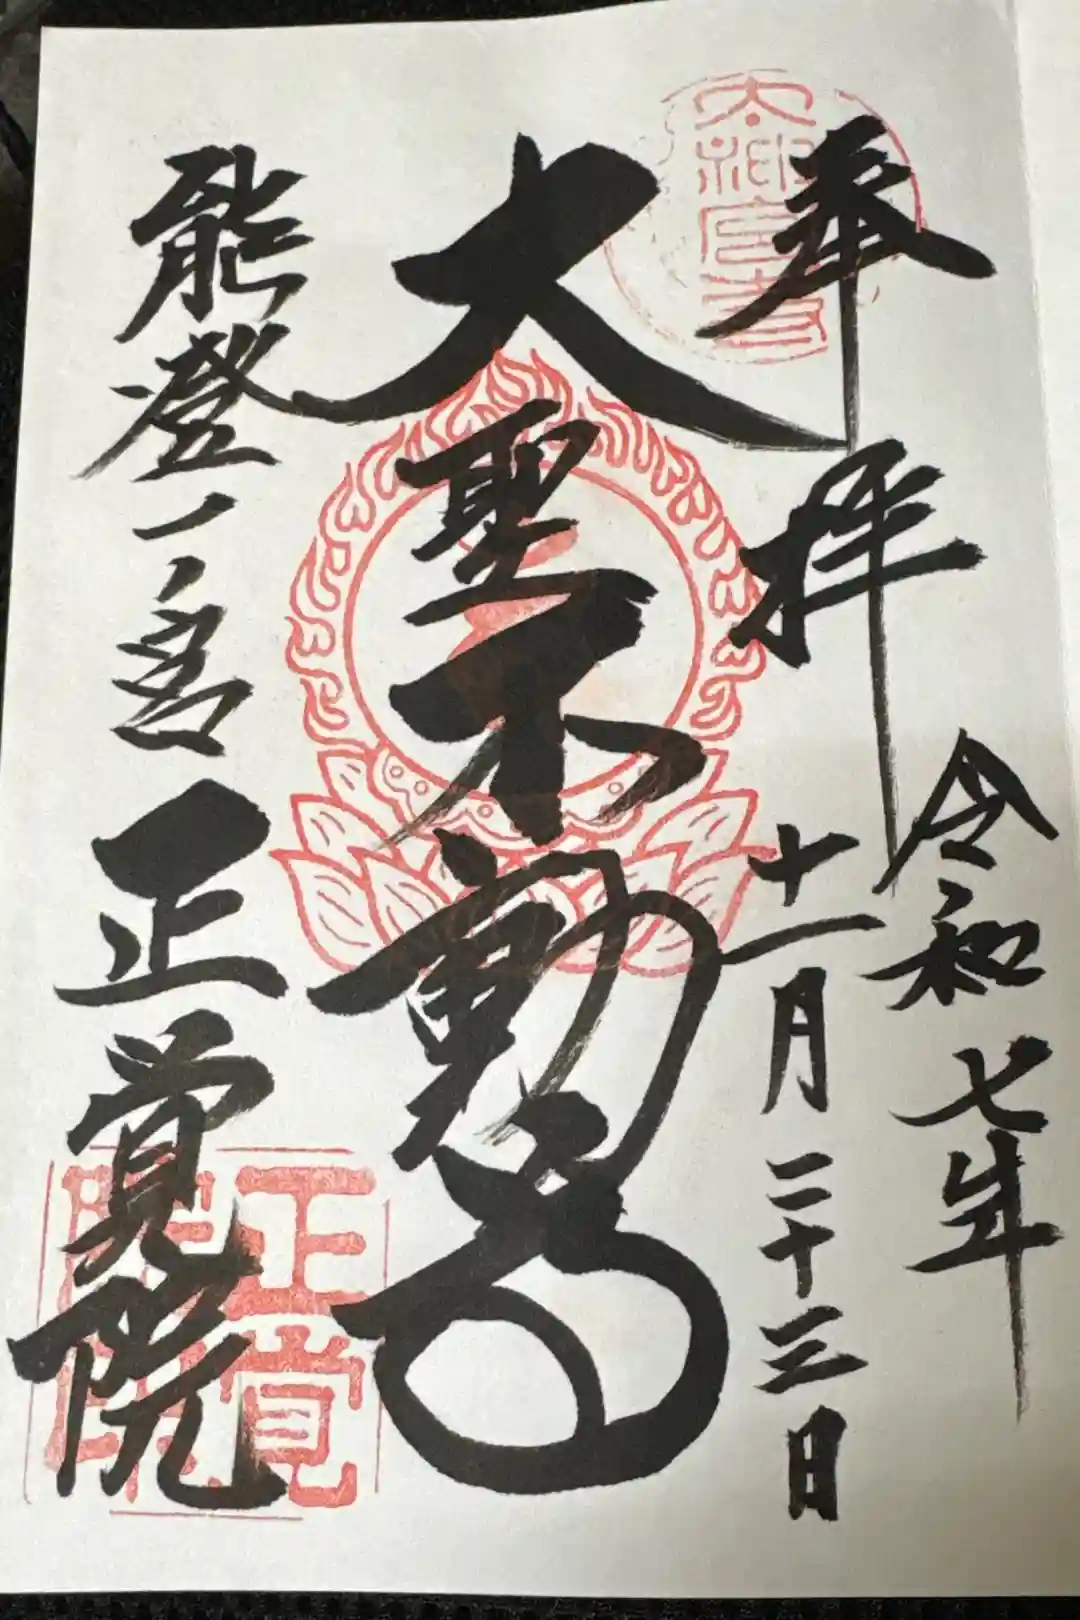 奉拝
令和七年
十一月二十三日
大聖不動尊
能登一ノ宮
正覚院
正覚院